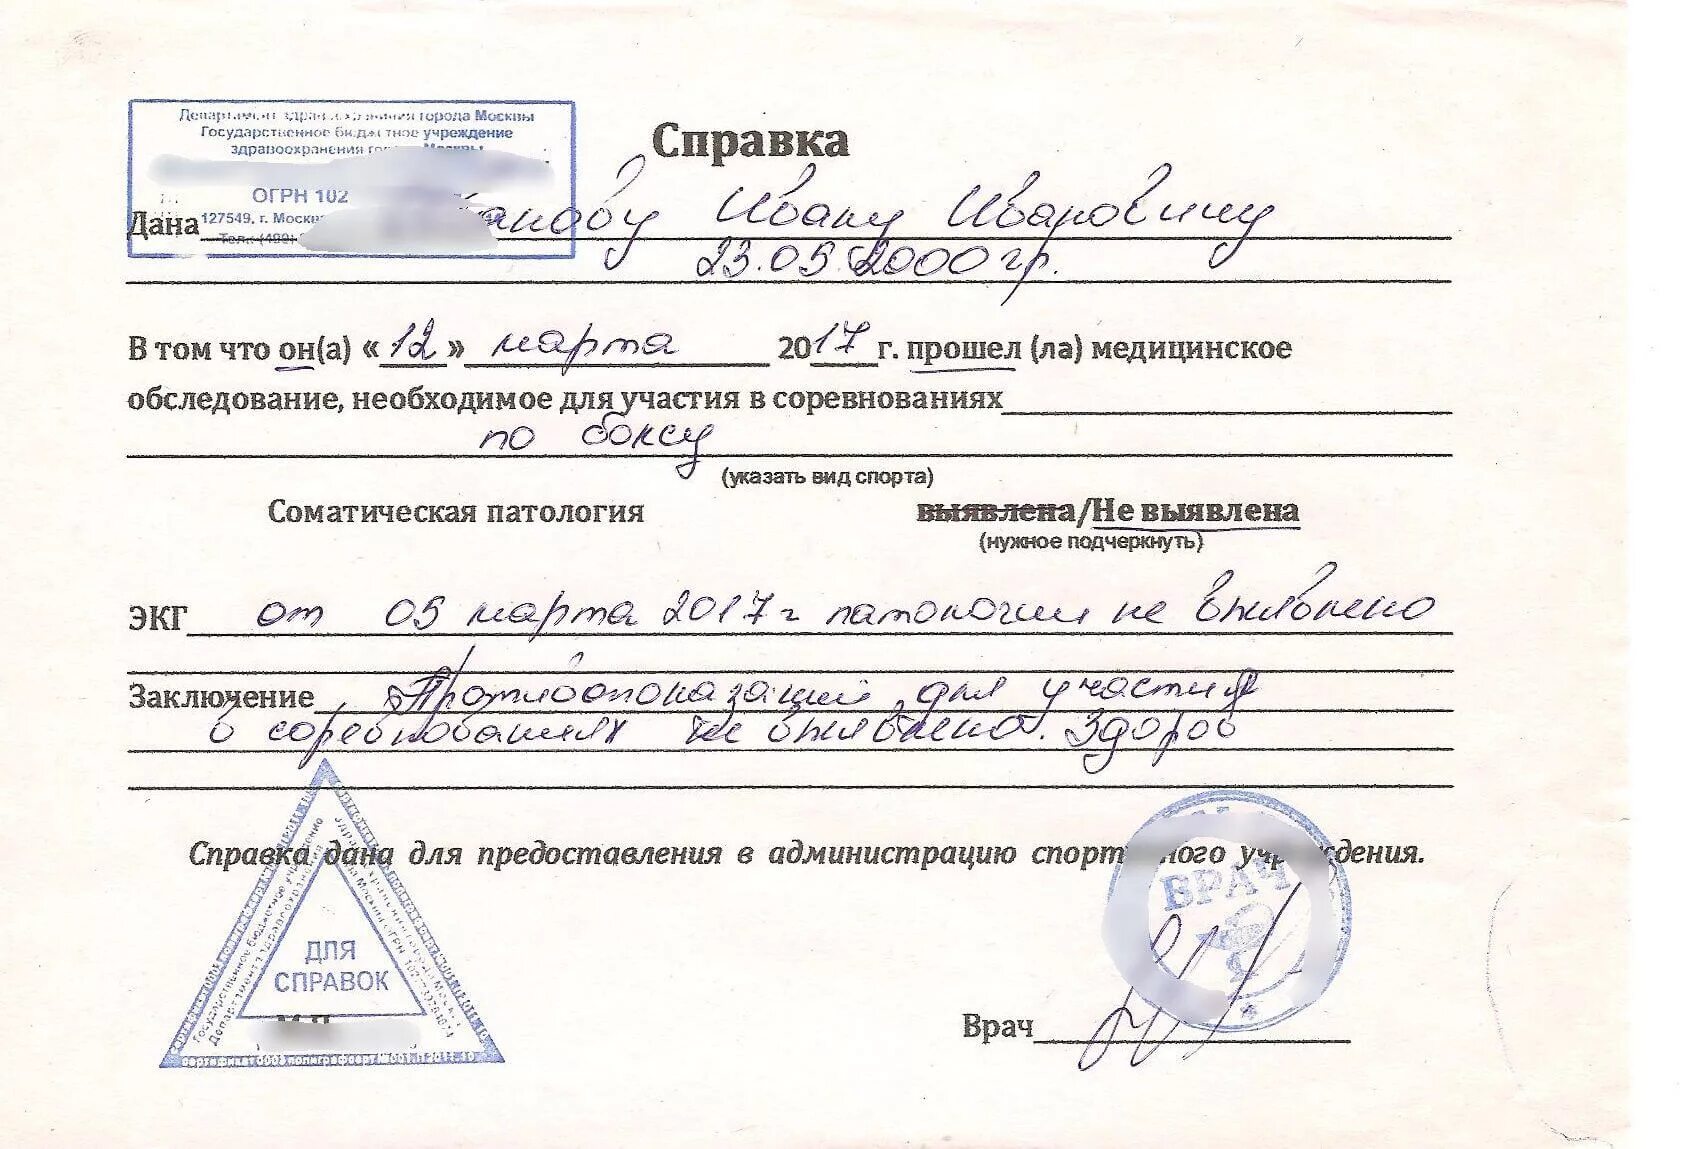 Департамент здравоохранения города Москвы
Государственное бюджетное учреждение
здравоохранения города Москвы
ОГРН 102
127549, г. Москва
Тел.: (499)
Справка
Дана Иванову Ивану Ивановичу
23.05.2000 гр.
В том что он(а) «12» марта 2017 г. прошел (ла) медицинское
обследование, необходимое для участия в соревнованиях
по боксу
(указать вид спорта)
Соматическая патология выявлена/Не выявлена
(нужное подчеркнуть)
ЭКГ от 05 марта 2017 г патологии не выявлено
Заключение Противопоказаний для участия
в соревнованиях не выявлено. Здоров
Справка дана для предоставления в администрацию спортивного учреждения.
ВРАЧ
ДЛЯ
СПРАВОК
М.П.
Врач